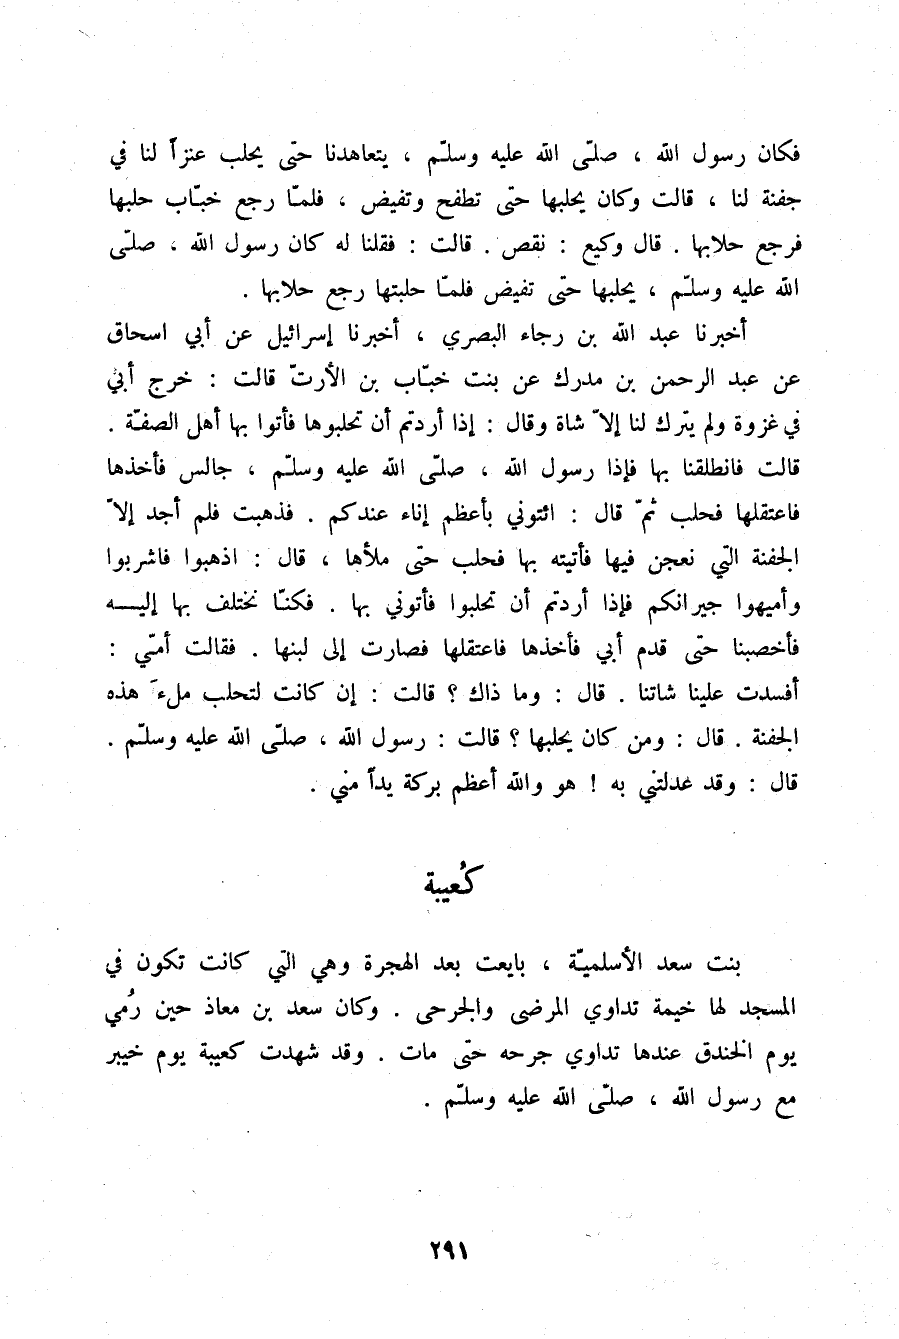 فكان رسول الله ، صلّى الله عليه وسلّم ، يتعاهدنا حتّى يحلب عنزاً لنا في
جفنة لنا ، قالت وكان يحلبها حتّى تطفح وتفيض ، فلمّا رجع خبّاب حلبها
فرجع حلابها . قال وكيع : نقص . قالت : فقلنا له كان رسول الله ، صلّى
الله عليه وسلّم ، يحلبها حتّى تفيض فلمّا حلبتها رجع حلابها .
أخبرنا عبد الله بن رجاء البصري ، أخبرنا إسرائيل عن أبي اسحاق
عن عبد الرحمن بن مدرك عن بنت خبّاب بن الأرتّ قالت : خرج أبي
في غزوة ولم يترك لنا إلاّ شاة وقال : إذا أردتم أن تحلبوها فأتوا بها أهل الصفّة .
قالت فانطلقنا بها فإذا رسول الله ، صلّى الله عليه وسلّم ، جالس فأخذها
فاعتقلها فحلب ثمّ قال : ائتوني بأعظم إناء عندكم . فذهبت فلم أجد إلاّ
الجفنة التّي نعجن فيها فأتيته بها فحلب حتّى ملأها ، قال : اذهبوا فاشربوا
وأميهوا جيرانكم فإذا أردتم أن تحلبوا فأتوني بها . فكنّا نختلف بها إليـــه
فأخصبنا حتّى قدم أبي فأخذها فاعتقلها فصارت إلى لبنها . فقالت أمّي :
أفسدت علينا شاتنا . قال : وما ذاك ؟ قالت : إن كانت لتحلب ملءَ هذه
الجفنة . قال : ومن كان يحلبها ؟ قالت : رسول الله ، صلّى الله عليه وسلّم .
قال : وقد عدلتني به ! هو والله أعظم بركة يداً منّي .
كُعيبة
بنت سعد الأسلميّة ، بايعت بعد الهجرة وهي التّي كانت تكون في
المسجد لها خيمة تداوي المرضى والجرحى . وكان سعد بن معاذ حين رُمي
يوم الخندق عندها تداوي جرحه حتّى مات . وقد شهدت كعيبة يوم خيبر
مع رسول الله ، صلّى الله عليه وسلّم .
٢٩١